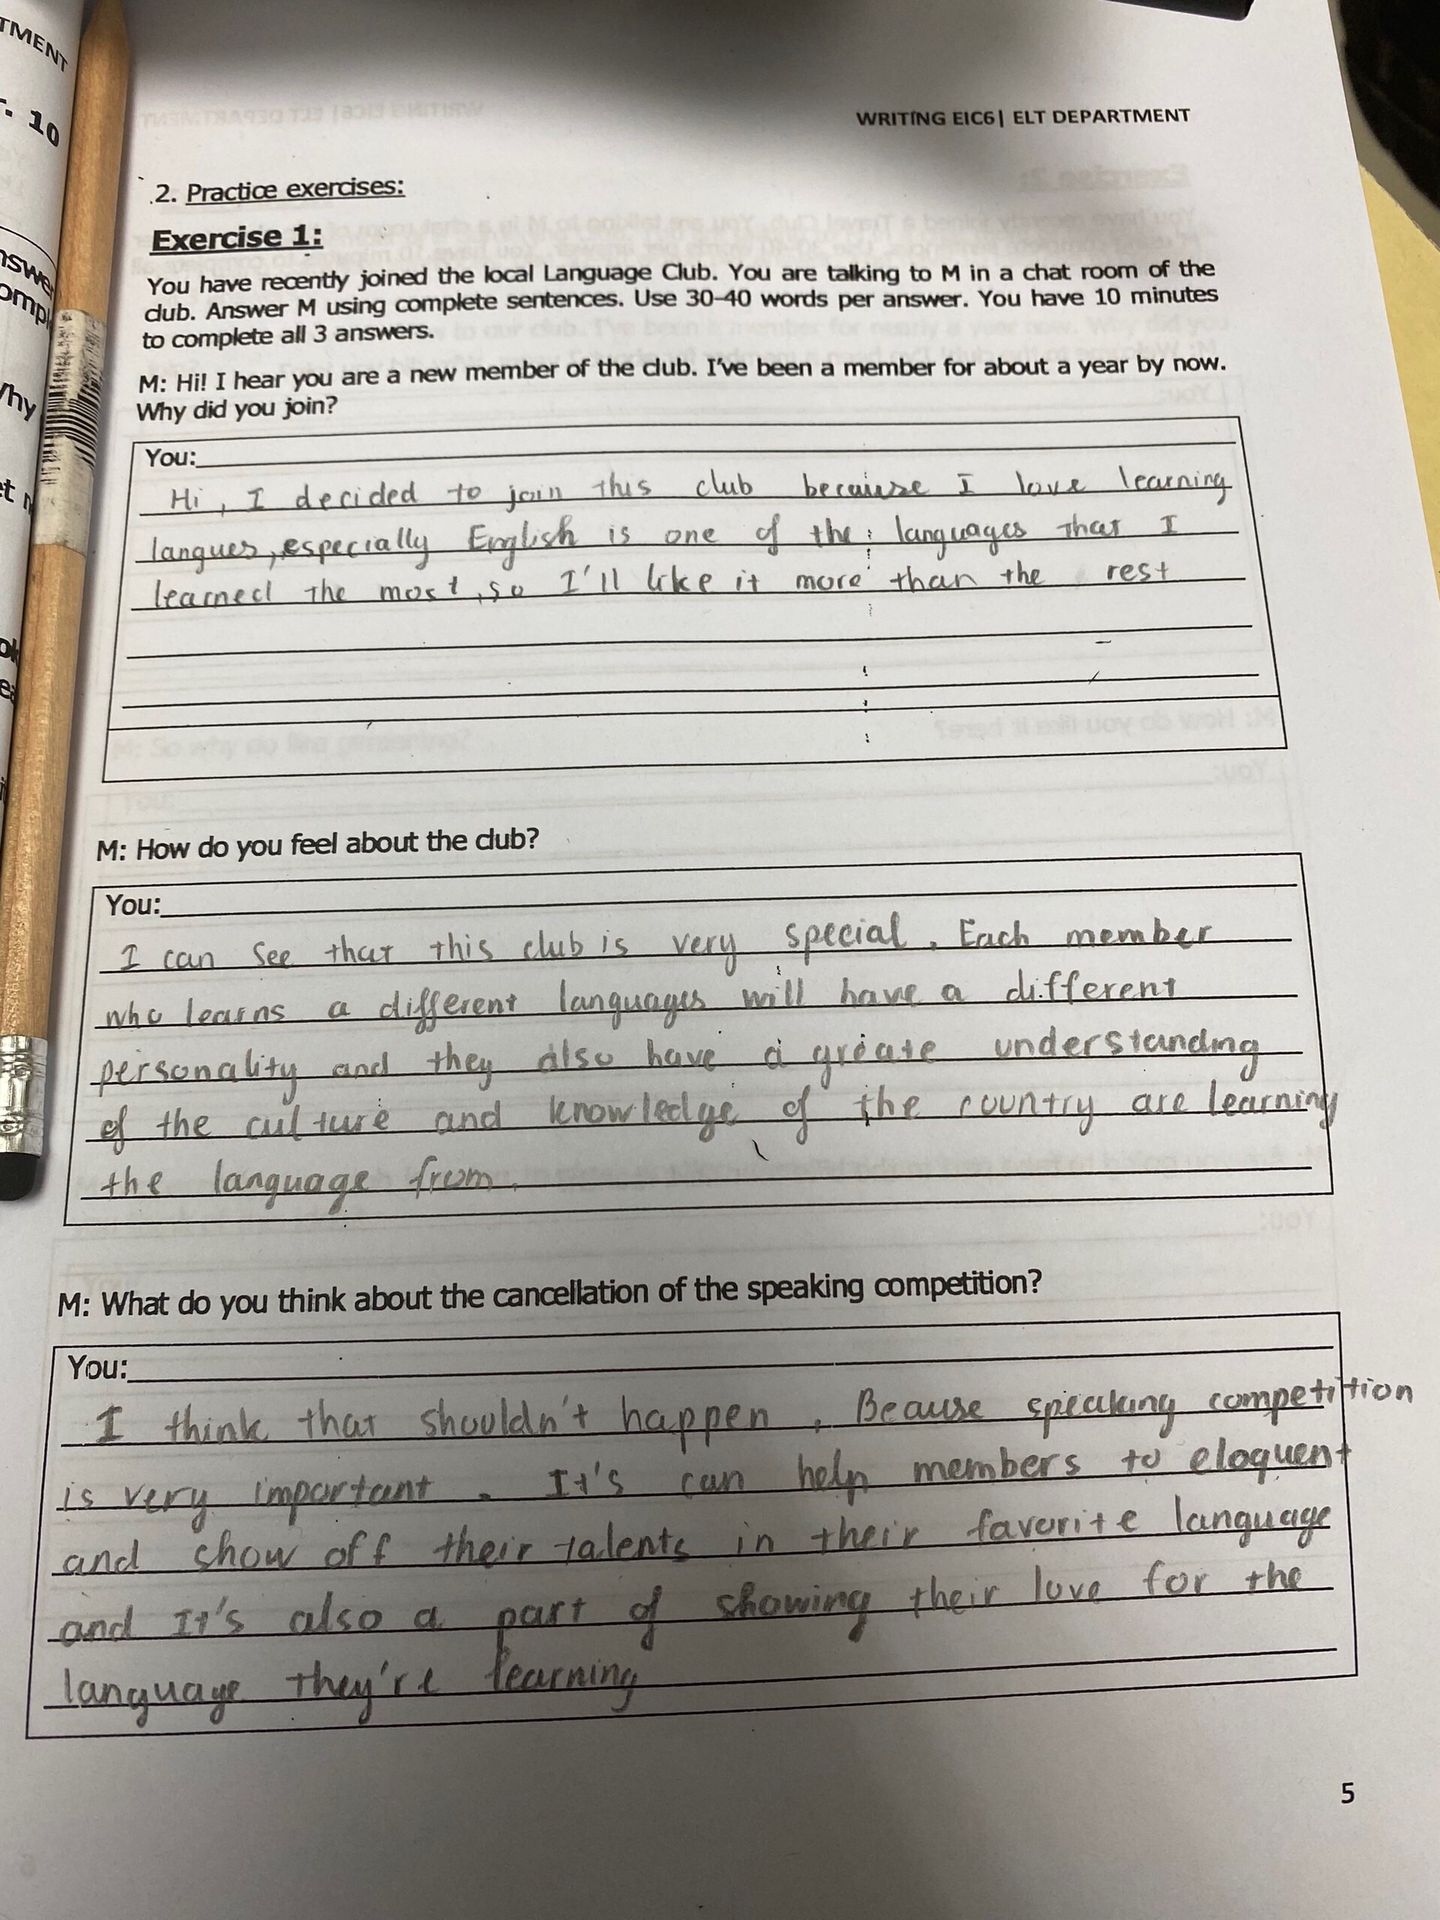 TMENT
. 10
WRITING EIC6| ELT DEPARTMENT
2. Practice exercises:
Exercise 1:
You have recently joined the local Language Club. You are talking to M in a chat room of the
club. Answer M using complete sentences. Use 30-40 words per answer. You have 10 minutes
to complete all 3 answers.
M: Hi! I hear you are a new member of the club. I've been a member for about a year by now.
Why did you join?
You:
Hi, I decided to join this club because I love learning
langues, especially English is one of the languages that I
learned the most, so I'll like it more than the rest
M: How do you feel about the club?
You:
I can see that this club is very special. Each member
who learns a different languages will have a different
personality and they also have a greate understanding
of the culture and knowledge of the country are learning
the language from.
M: What do you think about the cancellation of the speaking competition?
You:
I think that shouldn't happen. Beause speaking competition
is very important. It's can help members to eloquent
and show off their talents in their favorite language
and It's also a part of showing their love for the
language they're learning
5